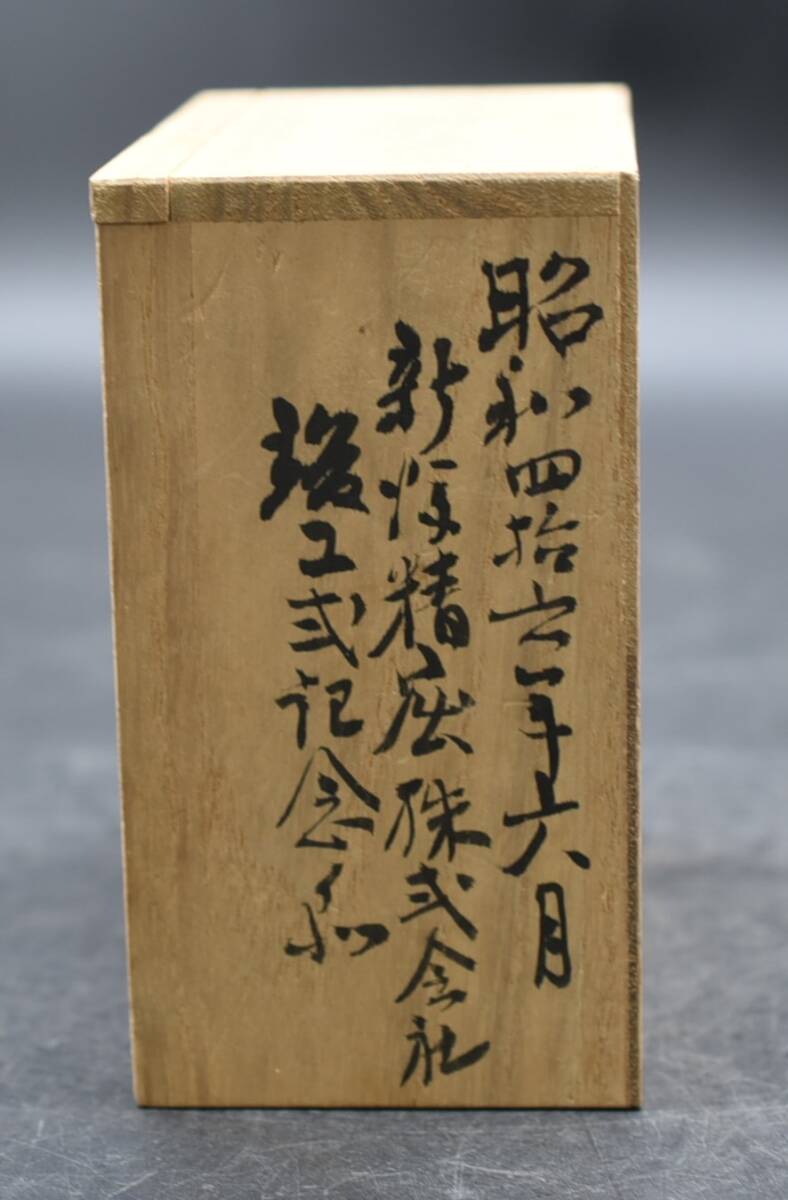 昭和四拾六年六月
新精株式会社
竣工式記念品